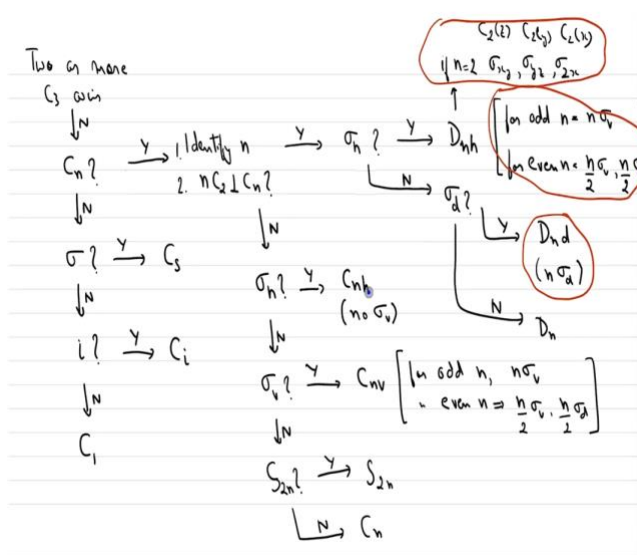 C₂(z) C₂(y) C₂(x)
if n=2 σxy, σyz, σzx
Two or more
C₃ axis
N
Cₙ? Y → 1. Identify n Y → σₕ? Y → Dₙₕ
2. nC₂ ⊥ Cₙ?
[for odd n = nσᵥ
for even n = n/2 σᵥ, n/2 σ
N → σd?
Y → Dₙd
(nσd)
N → Dₙ
N
σ? Y → Cₛ
N
i? Y → Cᵢ
N
C₁
N
σₕ? Y → Cₙₕ
(no σᵥ)
N
σᵥ? Y → Cₙᵥ [for odd n, nσᵥ
" even n ⇒ n/2 σᵥ, n/2 σd]
N
S₂ₙ? Y → S₂ₙ
N → Cₙ